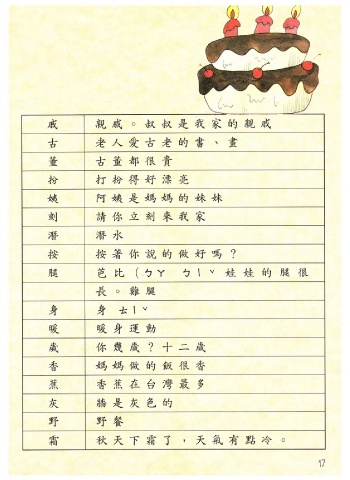 戚 親戚。叔叔是我家的親戚
古 老人愛古老的書、畫
董 古董都很貴
扮 打扮得好漂亮
姨 阿姨是媽媽的妹妹
刻 請你立刻來我家
潛 潛水
按 按著你說的做好嗎？
腿 芭比(ㄅㄚ ㄅㄧˇ 娃娃的腿很
長。雞腿
身 身 ㄊㄧˇ
暖 暖身運動
歲 你幾歲？十二歲
香 媽媽做的飯很香
蕉 香蕉在台灣最多
灰 牆是灰色的
野 野餐
霜 秋天下霜了，天氣有點冷。
17